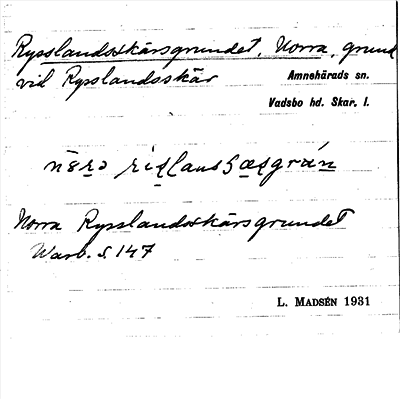 Rysslandsskärsgrundet, Norra, grund
vid Rysslandsskär
Amnehärads sn.
Vadsbo hd. Skar. l.
Norra Rysslandsskärsgrundet
Warb. s. 147
L. MADSÉN 1931